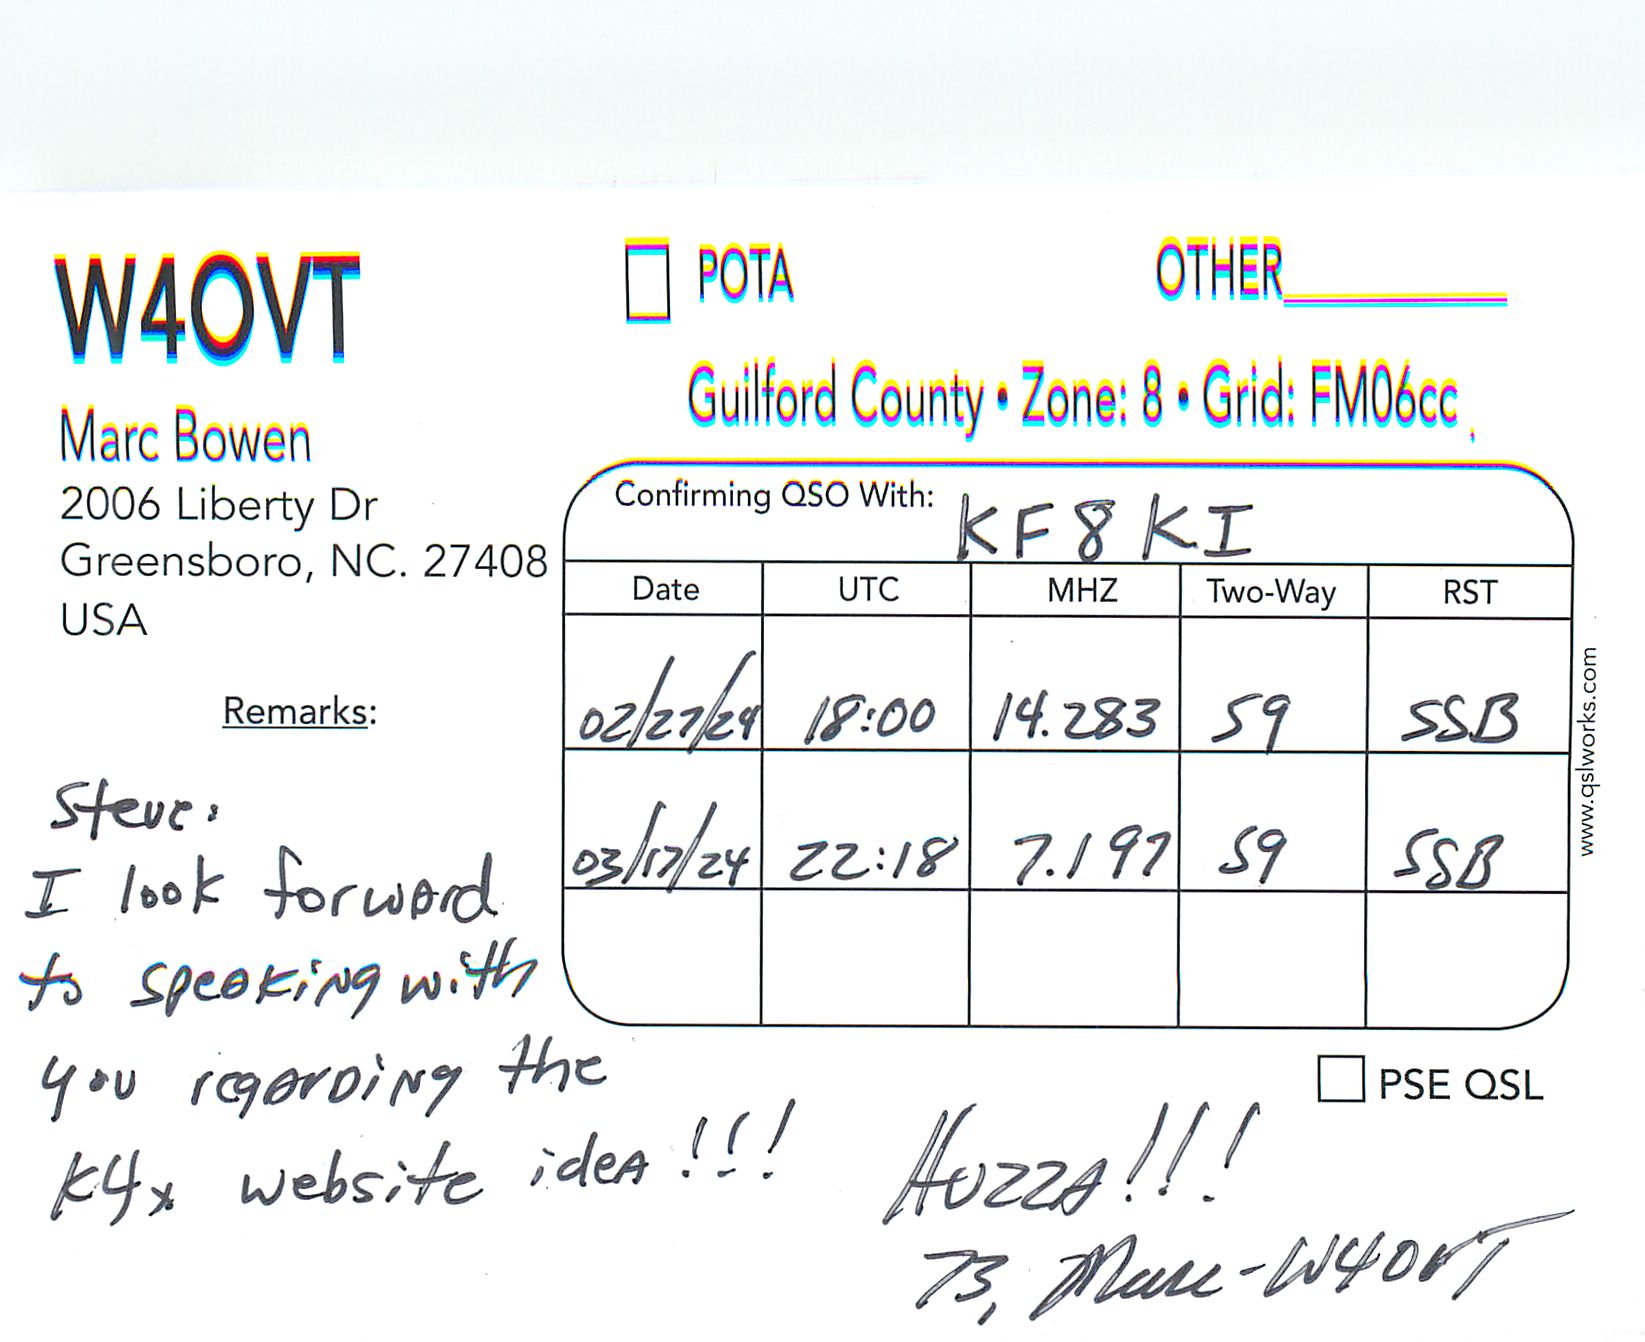 W4OVT
POTA
OTHER
Guilford County • Zone: 8 • Grid: FM06cc
Marc Bowen
2006 Liberty Dr
Greensboro, NC. 27408
USA
Confirming QSO With: KF8KI
Date UTC MHZ Two-Way RST
02/27/24 18:00 14.283 59 SSB
03/17/24 22:18 7.197 59 SSB
www.qslworks.com
PSE QSL
Remarks:
Steve:
I look forward
to speaking with
you regarding the
K4x website idea!!!
Huzza!!!
73, Marc-W4OVT